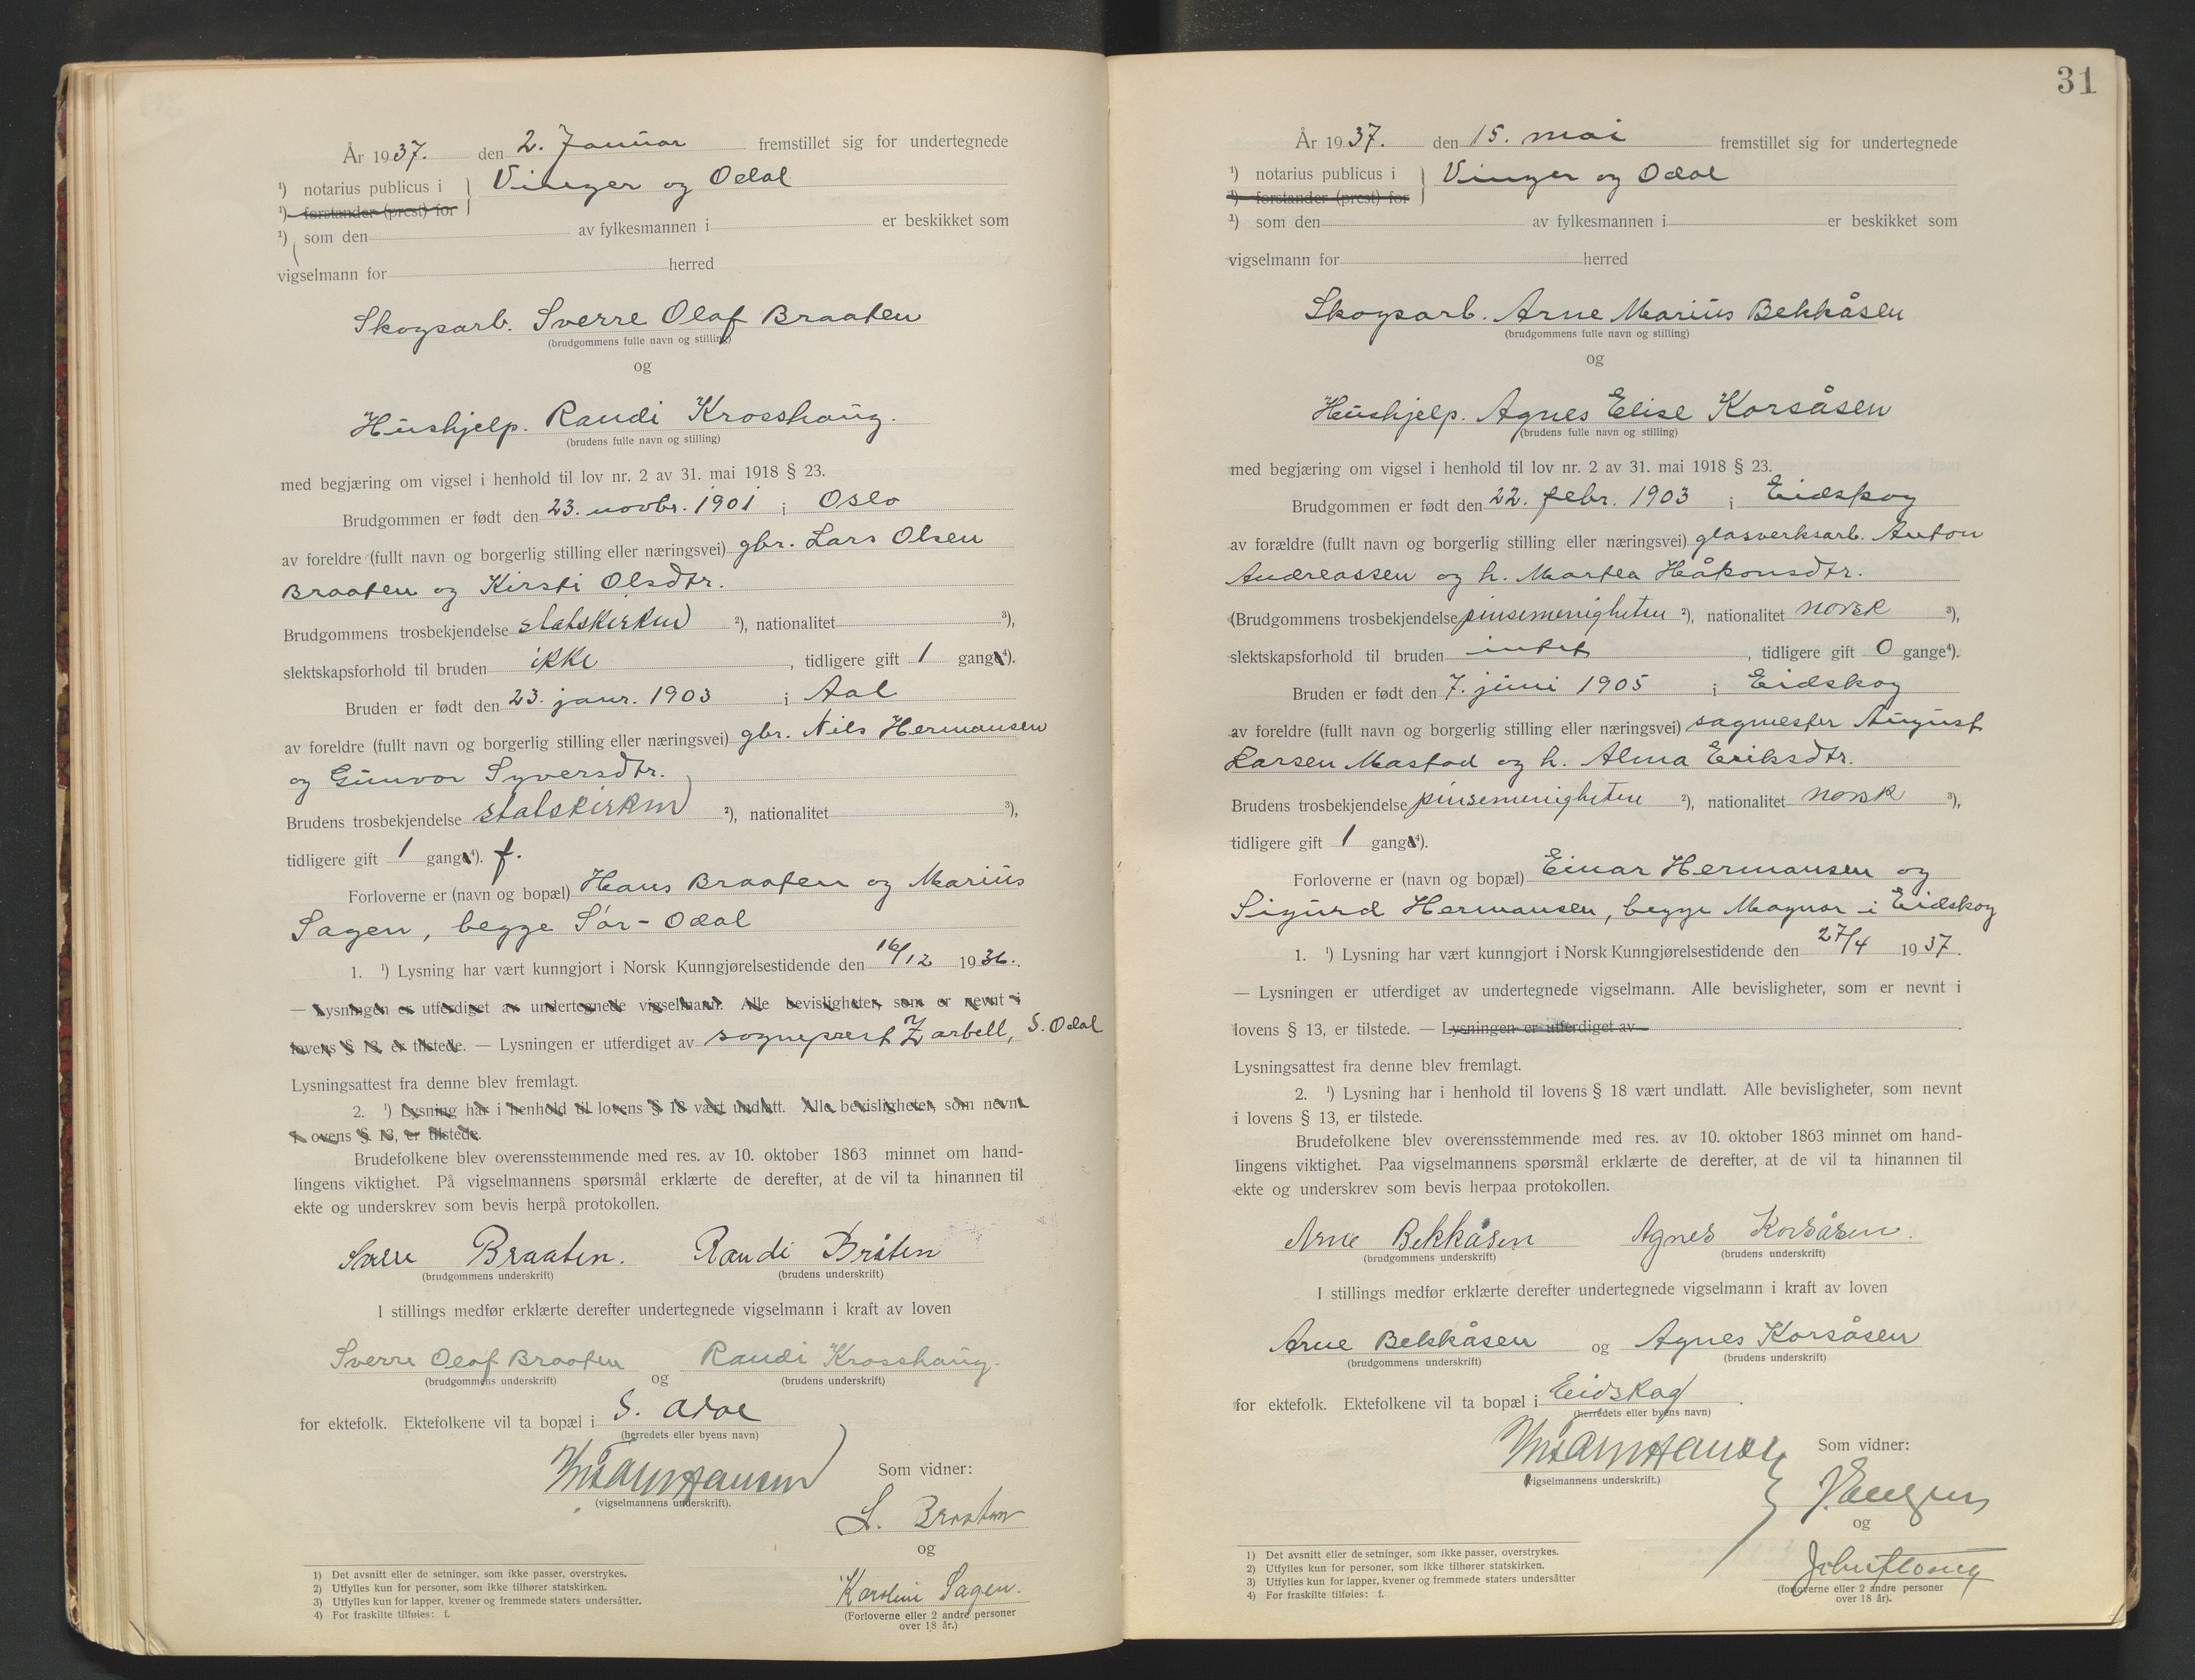 År 1937. den 2. Januar fremstillet sig for undertegnede
¹) notarius publicus i } Vinger og Odal
¹) forstander (prest) for
¹) som den av fylkesmannen i er beskikket som
vigselmann for herred
Skogsarb. Sverre Olaf Braaten
(brudgommens fulle navn og stilling)
og
Hushjelp. Randi Krosshaug.
(brudens fulle navn og stilling)
med begjæring om vigsel i henhold til lov nr. 2 av 31. mai 1918 § 23.
Brudgommen er født den 23. novbr. 1901 i Oslo
av foreldre (fullt navn og borgerlig stilling eller næringsvei) gbr. Lars Olsen
Braaten og Kirsti Olsdtr.
Brudgommens trosbekjendelse statskirken ²), nationalitet ³),
slektskapsforhold til bruden ikke , tidligere gift 1 gange⁴).
Bruden er født den 23. janr. 1903 i Aal
av foreldre (fullt navn og borgerlig stilling eller næringsvei) gbr. Nils Hermansen
og Gunvor Syversdtr.
Brudens trosbekjendelse statskirken ²), nationalitet ³),
tidligere gift 1 gange⁴). f.
Forloverne er (navn og bopæl) Hans Braaten og Marius
Sagen, begge Sør-Odal
1. ¹) Lysning har vært kunngjort i Norsk Kunngjørelsestidende den 16/12 1936.
— Lysningen er utferdiget av undertegnede vigselmann. Alle bevisligheter, som er nevnt i
lovens § 13, er tilstede. — Lysningen er utferdiget av sogneprest Zarbell, S. Odal
Lysningsattest fra denne blev fremlagt.
2. ¹) Lysning har i henhold til lovens § 18 vært undlatt. Alle bevisligheter, som nevnt
i lovens § 13, er tilstede.
Brudefolkene blev overensstemmende med res. av 10. oktober 1863 minnet om hand-
lingens viktighet. På vigselmannens spørsmål erklærte de derefter, at de vil ta hinannen til
ekte og underskrev som bevis herpå protokollen.
Sverre Braaten. Randi Bråten
(brudgommens underskrift) (brudens underskrift)
I stillings medfør erklærte derefter undertegnede vigselmann i kraft av loven
Sverre Olaf Braaten og Randi Krosshaug.
(brudgommens underskrift) (brudens underskrift)
for ektefolk. Ektefolkene vil ta bopæl i S. Odal
(herredets eller byens navn)
(vigselmannens underskrift).
Som vidner:
L. Braaten
og
Karoline Sagen.
(Forloverne eller 2 andre personer
over 18 år.)
1) Det avsnitt eller de setninger, som ikke passer, overstrykes.
2) Utfylles kun for personer, som ikke tilhører statskirken.
3) Utfylles kun for lapper, kvener og fremmede staters undersåtter.
4) For fraskilte tilføies: f.
31
År 1937. den 15. mai fremstillet sig for undertegnede
¹) notarius publicus i } Vinger og Odal
¹) forstander (prest) for
¹) som den av fylkesmannen i er beskikket som
vigselmann for herred
Skogsarb. Arne Marius Bekkåsen
(brudgommens fulle navn og stilling)
og
Hushjelp. Agnes Elise Korsåsen
(brudens fulle navn og stilling)
med begjæring om vigsel i henhold til lov nr. 2 av 31. mai 1918 § 23.
Brudgommen er født den 22. febr. 1903 i Eidskog
av forældre (fullt navn og borgerlig stilling eller næringsvei) glasverksarb. Anton
Andreassen og h. Martea Håkonsdtr.
(Brudgommens trosbekjendelse pinsemenigheten ²), nationalitet norsk ³),
slektskapsforhold til bruden intet , tidligere gift 0 gange⁴).
Bruden er født den 7. juni 1905 i Eidskog
av foreldre (fullt navn og borgerlig stilling eller næringsvei) sagmester August
Larsen Mastad og h. Alma Eriksdtr.
Brudens trosbekjendelse pinsemenigheten ²), nationalitet norsk ³),
tidligere gift 1 gange⁴).
Forloverne er (navn og bopæl) Einar Hermansen og
Sigurd Hermansen, begge Magnor i Eidskog
1. ¹) Lysning har vært kunngjort i Norsk Kunngjørelsestidende den 27/4 1937.
— Lysningen er utferdiget av undertegnede vigselmann. Alle bevisligheter, som er nevnt i
lovens § 13, er tilstede. — Lysningen er utferdiget av
Lysningsattest fra denne blev fremlagt.
2. ¹) Lysning har i henhold til lovens § 18 vært undlatt. Alle bevisligheter, som nevnt
i lovens § 13, er tilstede.
Brudefolkene blev overensstemmende med res. av 10. oktober 1863 minnet om hand-
lingens viktighet. Paa vigselmannens spørsmål erklærte de derefter, at de vil ta hinannen til
ekte og underskrev som bevis herpaa protokollen.
Arne Bekkåsen Agnes Korsåsen.
(brudgommens underskrift) (brudens underskrift)
I stillings medfør erklærte derefter undertegnede vigselmann i kraft av loven
Arne Bekkåsen og Agnes Korsåsen
(brudgommens underskrift) (brudens underskrift)
for ektefolk. Ektefolkene vil ta bopæl i Eidskog.
(herredets eller byens navn)
(vigselmannens underskrift.)
Som vidner:
og
(forloverne eller 2 andre personer
over 18 år).
1) Det avsnitt eller de setninger, som ikke passer, overstrykes.
2) Utfylles kun for personer, som ikke tilhører statskirken.
3) Utfylles kun for lapper, kvener og fremmede staters undersåtter
4) For fraskilte tilføies: f.